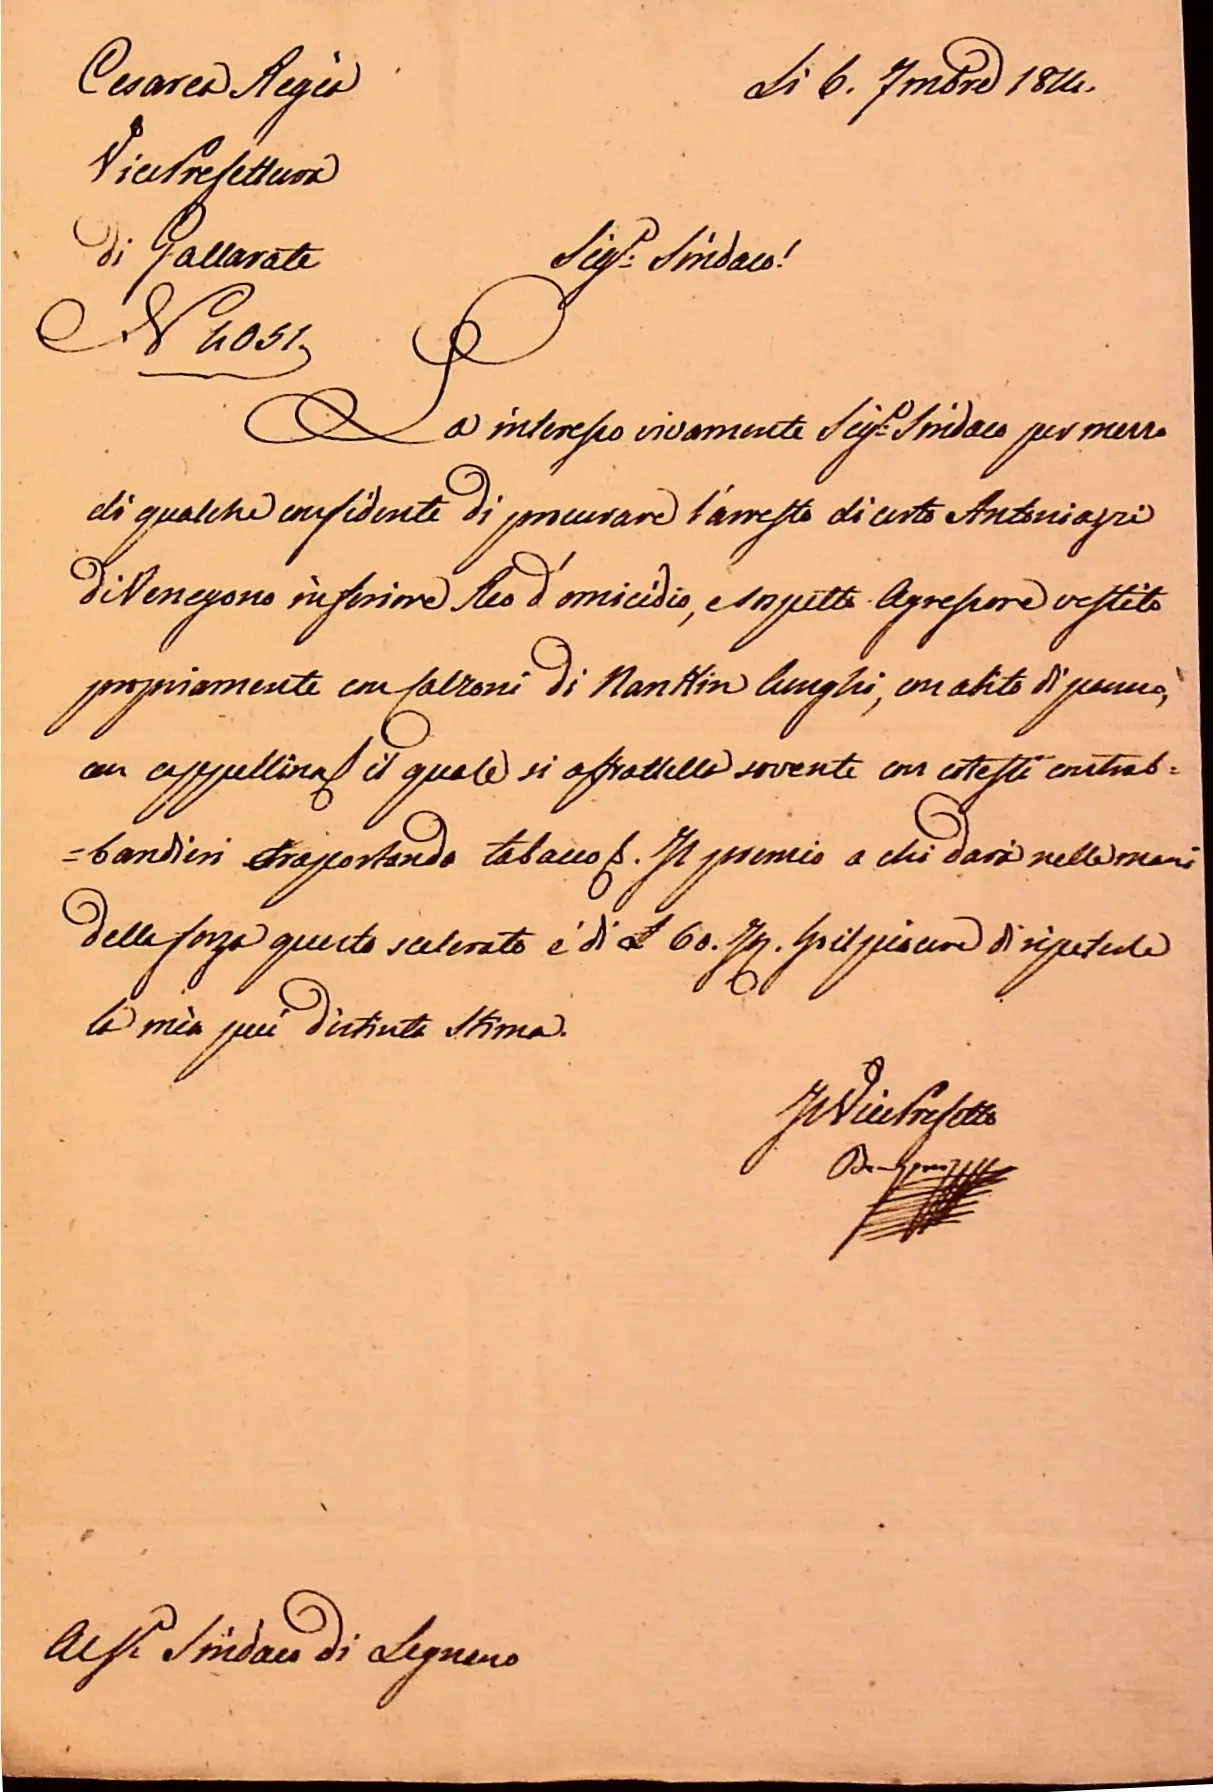 Cesarea Regia
Li 6. 7mbre 1814.
Vice Prefettura
di Gallarate
Sigr. Sindaco!
N 4051
La interesso vivamente Sigr. Sindaco per mezzo
di qualche confidente di procurare l'arresto di certo Antoniazzi
di Venegono inferiore Reo d'omicidio, e sospetto Agressore vestito
propriamente con Calzoni di Nankin lunghi, con abito di panno,
con cappellina il quale si affratella sovente con cotesti contrab=
=bandieri trasportando tabacco. Il premio a chi darà nelle mani
della forza questo scelerato é di £ 60. Ho il piacere di ripeterle
la mia più distinta stima.
Il Vice Prefetto
Al Sr. Sindaco di Legnano